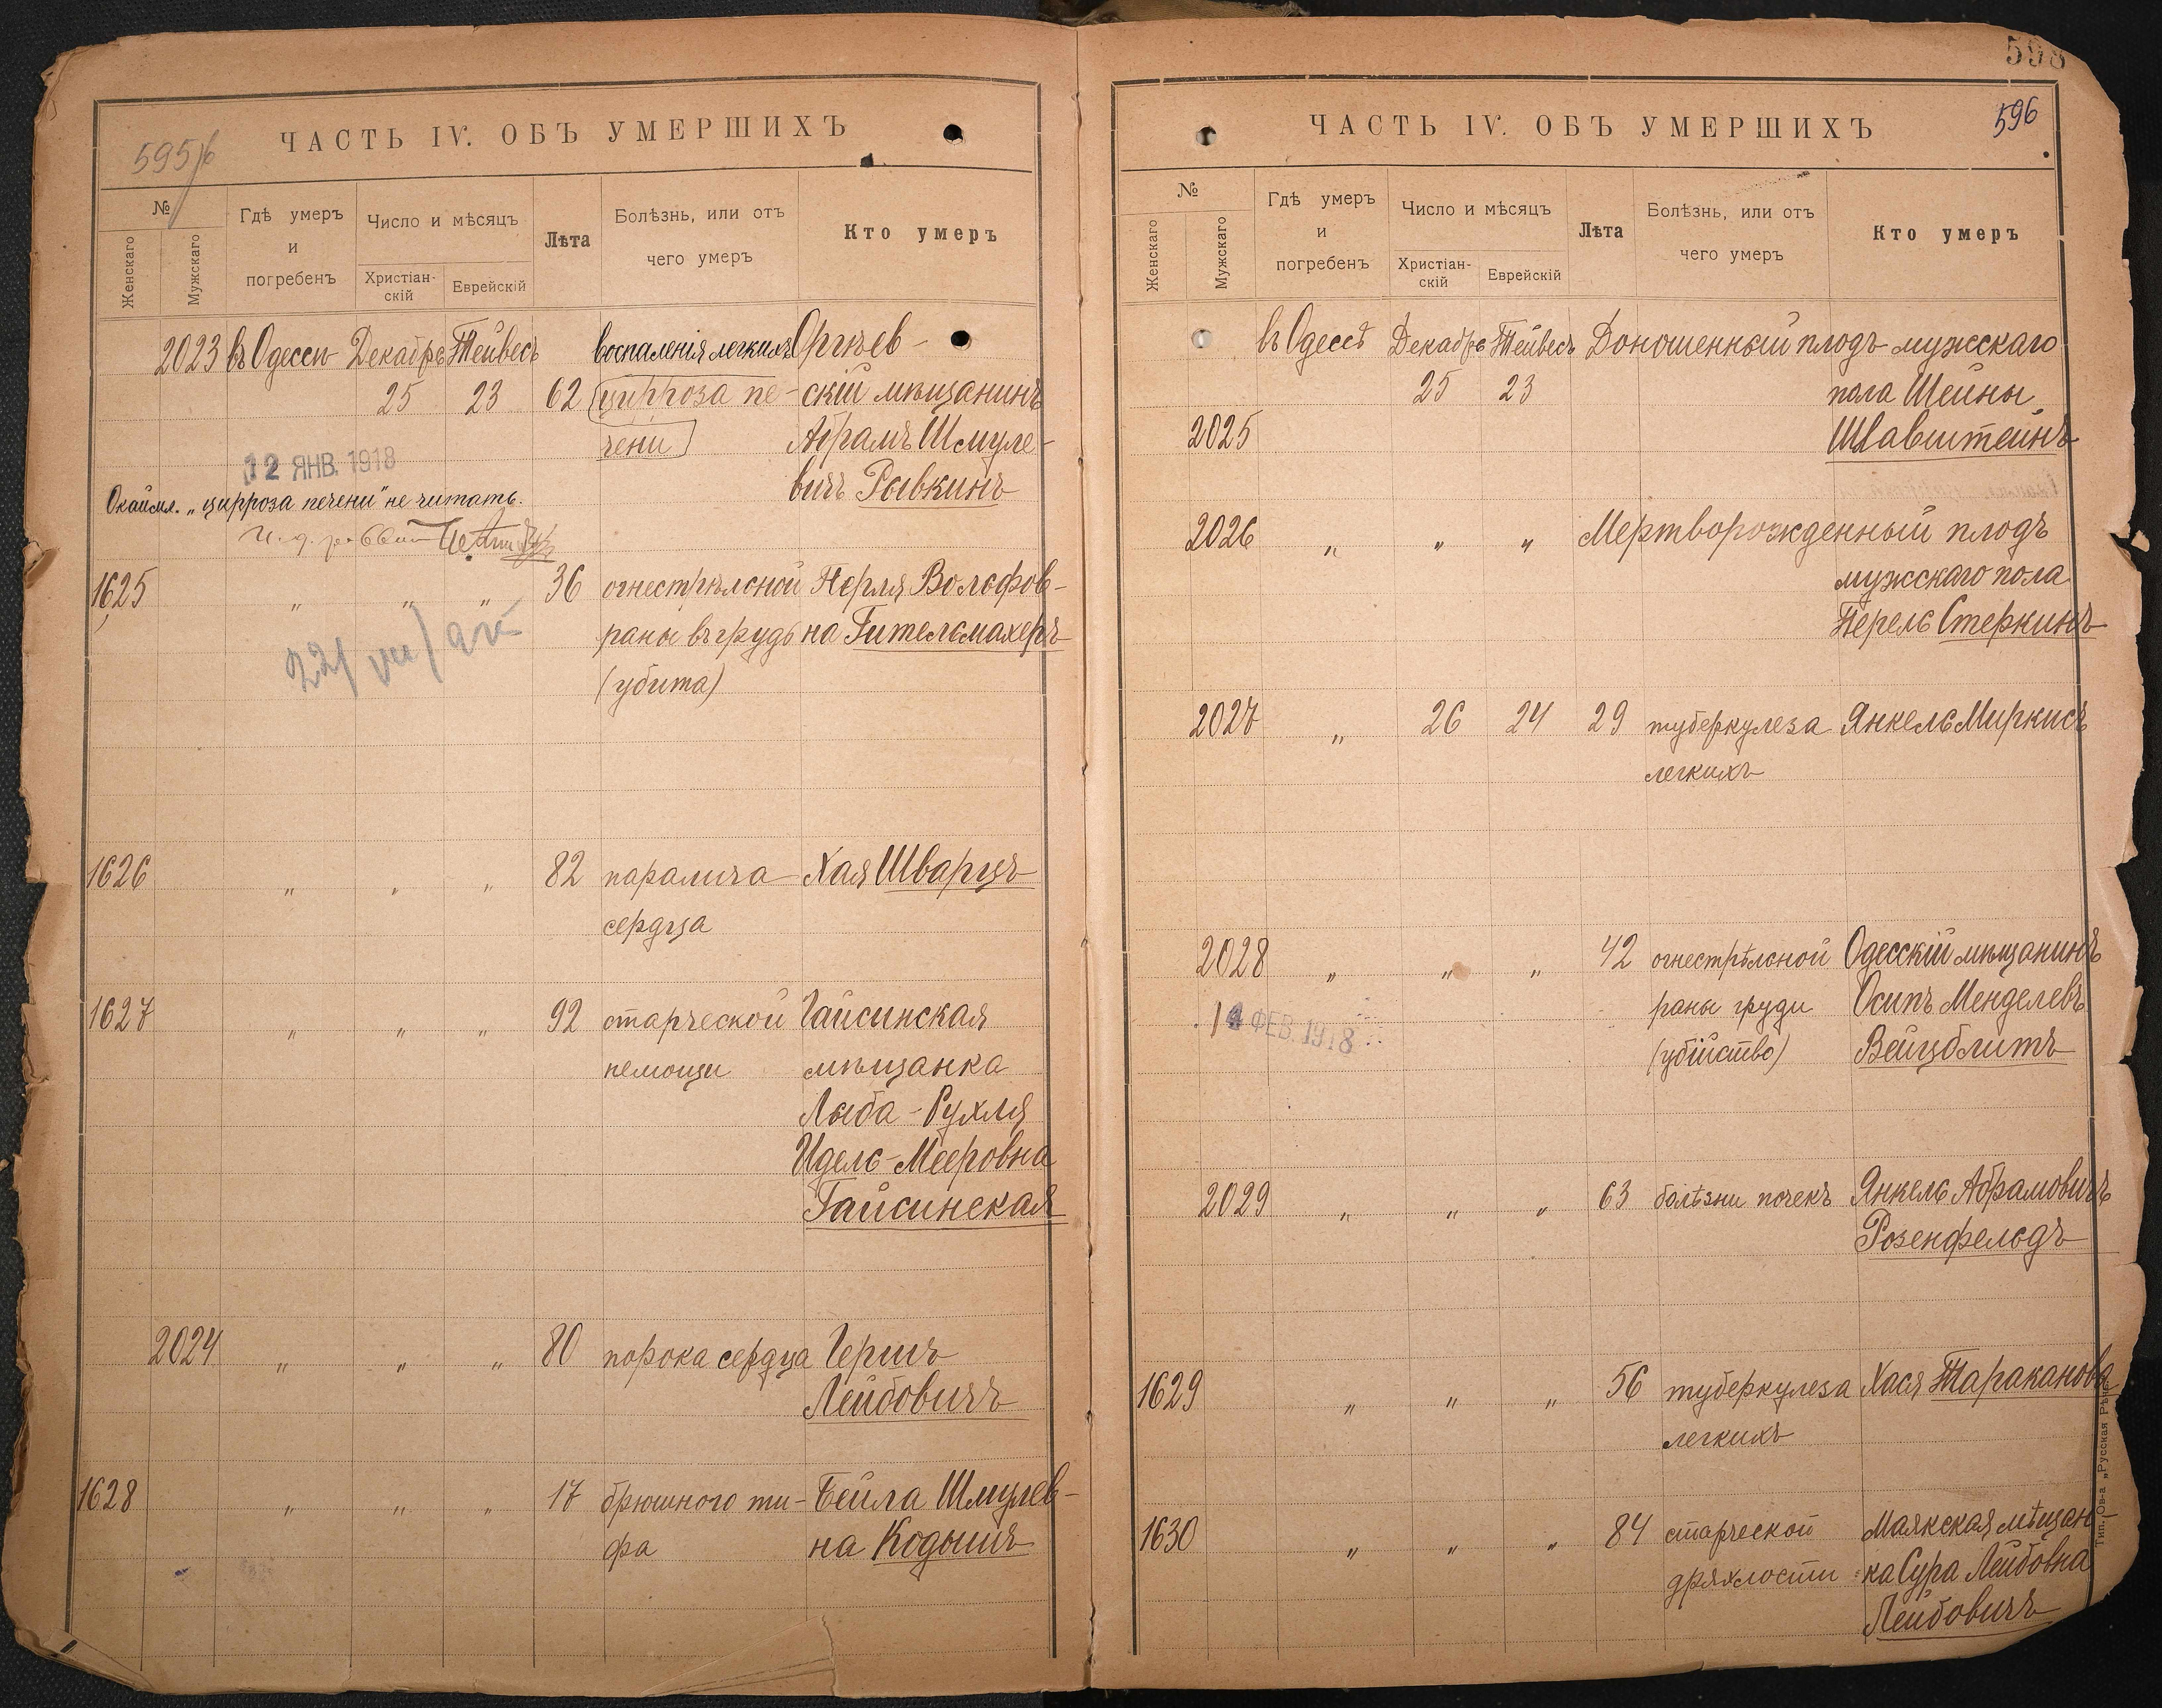 595/6
ЧАСТЬ IV. ОБЪ УМЕРШИХЪ
№
Женскаго
Мужскаго
Гдѣ умеръ
и
погребенъ
Число и мѣсяцъ
Христіан-
скій
Еврейскій
Лѣта
Болѣзнь, или отъ
чего умеръ
Кто умеръ
2023 въ Одессѣ Декабрь Тейвесъ воспаленія легкихъ Оргѣев-
25 23 62 цирроза пе- скій мѣщанинъ
чени Абрамъ Шмуле-
12 ЯНВ. 1918
вичъ Рывкинъ
Окаймл. „цирроза печени" не читать.
1625 „ „ „ 36 огнестрѣльной Перля Вольфов-
раны въ грудь на Гительмахеръ
(убита)
1626 „ „ „ 82 паралича Хая Шварцъ
сердца
1627 „ „ „ 92 старческой Гайсинская
немощи мѣщанка
Лыба-Рухля
Идель-Мееровна
Гайсинская
2024 „ „ „ 80 порока сердца Гершъ
Лейбовичъ
1628 „ „ „ 17 брюшного ти- Бейла Шмулев-
фа на Кодышъ
598
596
ЧАСТЬ IV. ОБЪ УМЕРШИХЪ
№
Женскаго
Мужскаго
Гдѣ умеръ
и
погребенъ
Число и мѣсяцъ
Христіан-
скій
Еврейскій
Лѣта
Болѣзнь, или отъ
чего умеръ
Кто умеръ
въ Одессѣ Декабрь Тейвесъ Доношенный плодъ мужскаго
25 23 пола Шейны
2025 Шлавштейнъ
2026 „ „ „ Мертворожденный плодъ
мужскаго пола
Перель Стеркинъ
2027 „ 26 24 29 туберкулеза Янкель Миркисъ
легкихъ
2028 „ „ „ 42 огнестрѣльной Одесскій мѣщанинъ
14 ФЕВ. 1918
раны груди Осипъ Менделевъ
(убійство) Вейцблитъ
2029 „ „ „ 63 болѣзни почекъ Янкель Абрамовичъ
Розенфельдъ
1629 „ „ „ 56 туберкулеза Хася Тараканова
легкихъ
1630 „ „ „ 84 старческой Маякская мѣщан-
дряхлости ка Сура Лейбовна
Лейбовичъ
Тип. Ов-а „Русская Рѣчь"